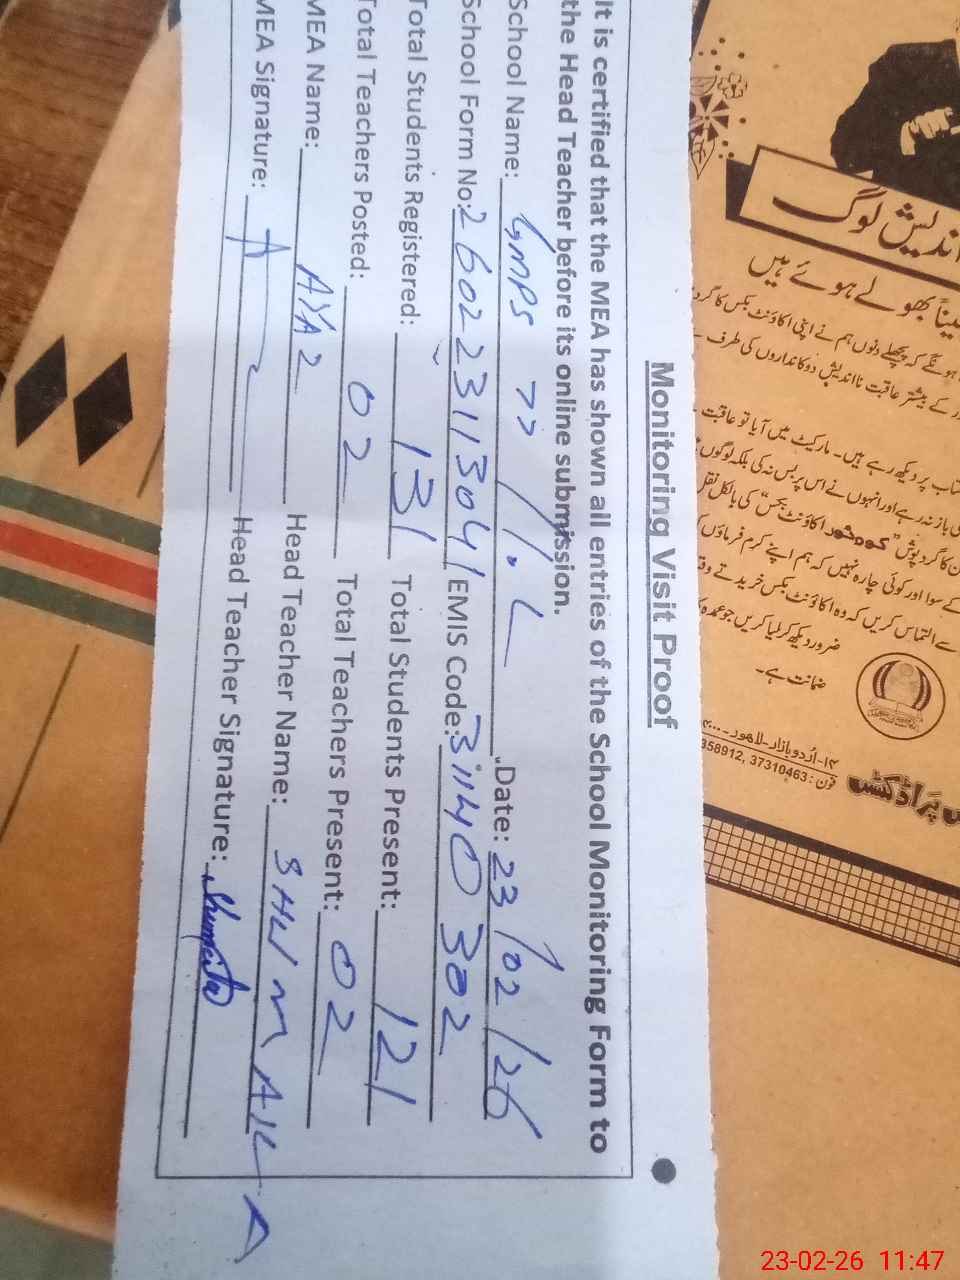 Monitoring Visit Proof
It is certified that the MEA has shown all entries of the School Monitoring Form to
the Head Teacher before its online submission.
School Name: GMPS 77/1.L Date: 23/02/26
School Form No: 26022311304 EMIS Code: 31140302
Total Students Registered: 131 Total Students Present: 121
Total Teachers Posted: 02 Total Teachers Present: 02
MEA Name: Head Teacher Name:
MEA Signature: Head Teacher Signature:
اندیش لوگ
بھولے ہوئے ہیں
ہونگے کہ پچھلے دنوں ہم نے اپنی اکاؤنٹ بکس کا گرد
کے بیشتر عاقبت نااندیش دوکانداروں کی طرف
پر دیکھ رہے ہیں۔ مارکیٹ میں آیا تو عاقبت
باز نہ رہے اور انہوں نے اس پر بس نہ کی بلکہ لوگوں
کا گرد پوش "کوہ نور اکاؤنٹ بکس" کی بالکل نقل
کے سوا اور کوئی چارہ نہیں کہ ہم اپنے کرم فرماؤں
سے التماس کریں کہ وہ اکاؤنٹ بکس خریدتے وقت
ضرور دیکھ کر لیا کریں جو عمدہ
ضمانت ہے۔
۱۳-اُردو بازار-لاہور
فون : 37310463 ,358912
پراڈکٹس
23-02-26 11:47